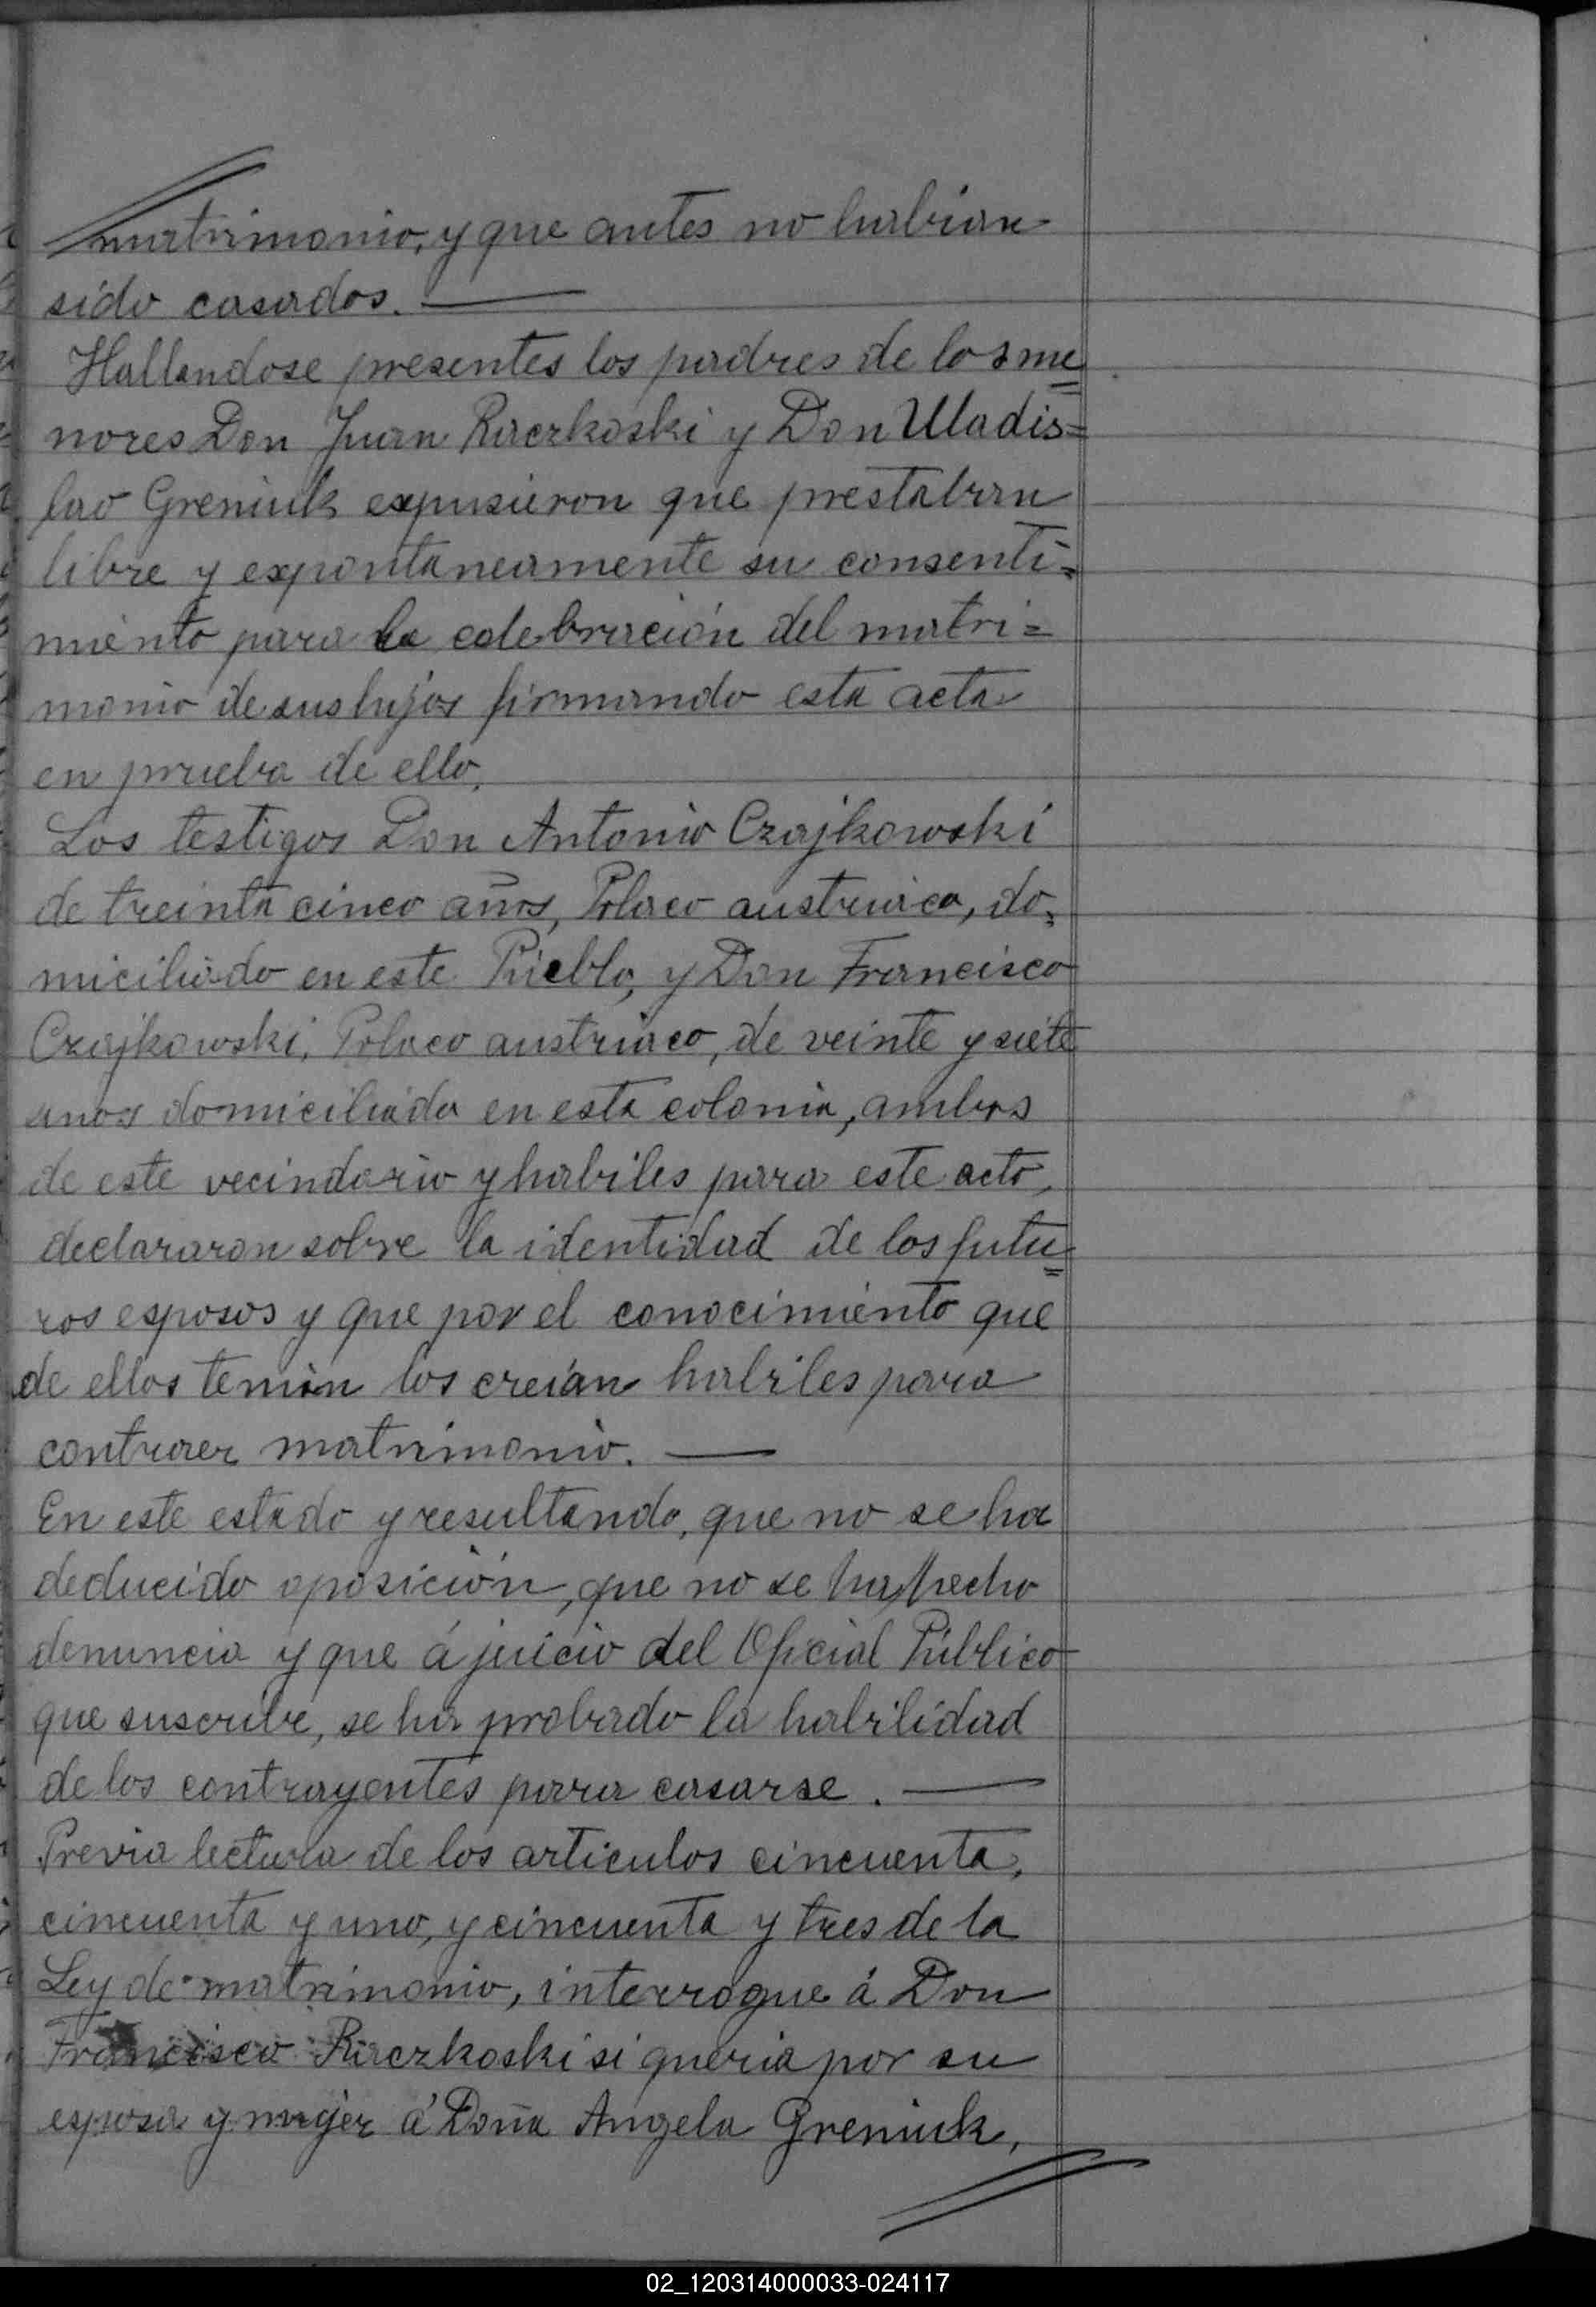 matrimonio, y que antes no habian
sido casados. —
Hallandose presentes los padres de los me
nores Don Juan Raczkoski y Don Uladis=
lao Greniuk expusieron que prestaban
libre y expontaneamente su consenti=
miento para la celebración del matri=
monio de sus hijos firmando esta acta
en prueba de ello.
Los testigos Don Antonio Czajkowski
de treinta cinco años, Polaco austriaco, do=
miciliado en este Pueblo, y Don Francisco
Czajkowski, Polaco austriaco, de veinte y siete
anos domiciliado en esta colonia, ambos
de este vecindario y habiles para este acto,
declararon sobre la identidad de los futu
ros esposos y que por el conocimiento que
de ellos tenian los creían habiles para
contraer matrimonio. —
En este estado y resultando, que no se ha
deducido oposición, que no se ha hecho
denuncia y que á juicio del Oficial Público
que suscribe, se ha probado la habilidad
de los contrayentes para casarse. —
Previa lectura de los articulos cincuenta,
cincuenta y uno, y cincuenta y tres de la
Ley de matrimonio, interrogue á Don
Francisco Raczkoski si queria por su
esposa y mujer á Doña Angela Greniuk,
02_120314000033-024117